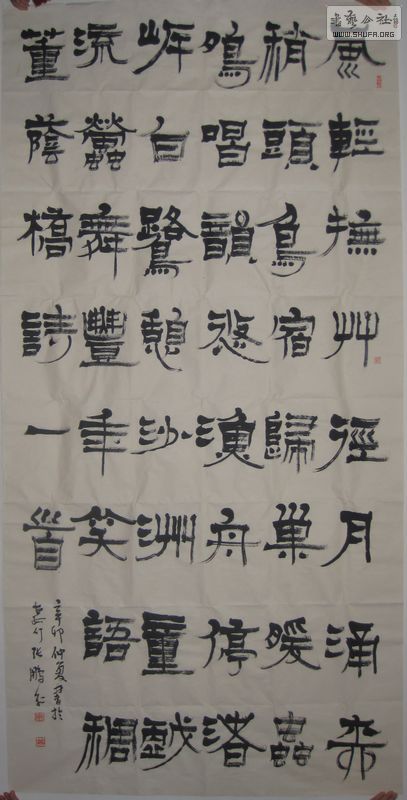 書藝公社
WWW.SHUFA.ORG
風輕撫艸徑月涌
稍頭鳥宿歸巢暖蟲
鳴唱韻悠漁舟停渚
岸白鷺憩沙洲童
流螢舞豐年笑語稠
董蔭橋詩一首
辛卯仲夏書於
竹張鵬